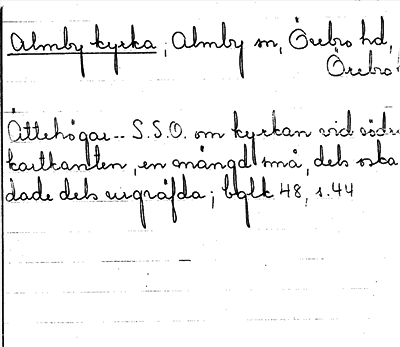 Almby kyrka, Almby sn, Örebro hd,
Örebro
Ättehögar-- S.S.O. om kyrkan vid söd
kartkanten, en mängd små, dels oska
dade dels urgräfda; bglk 48, s. 44